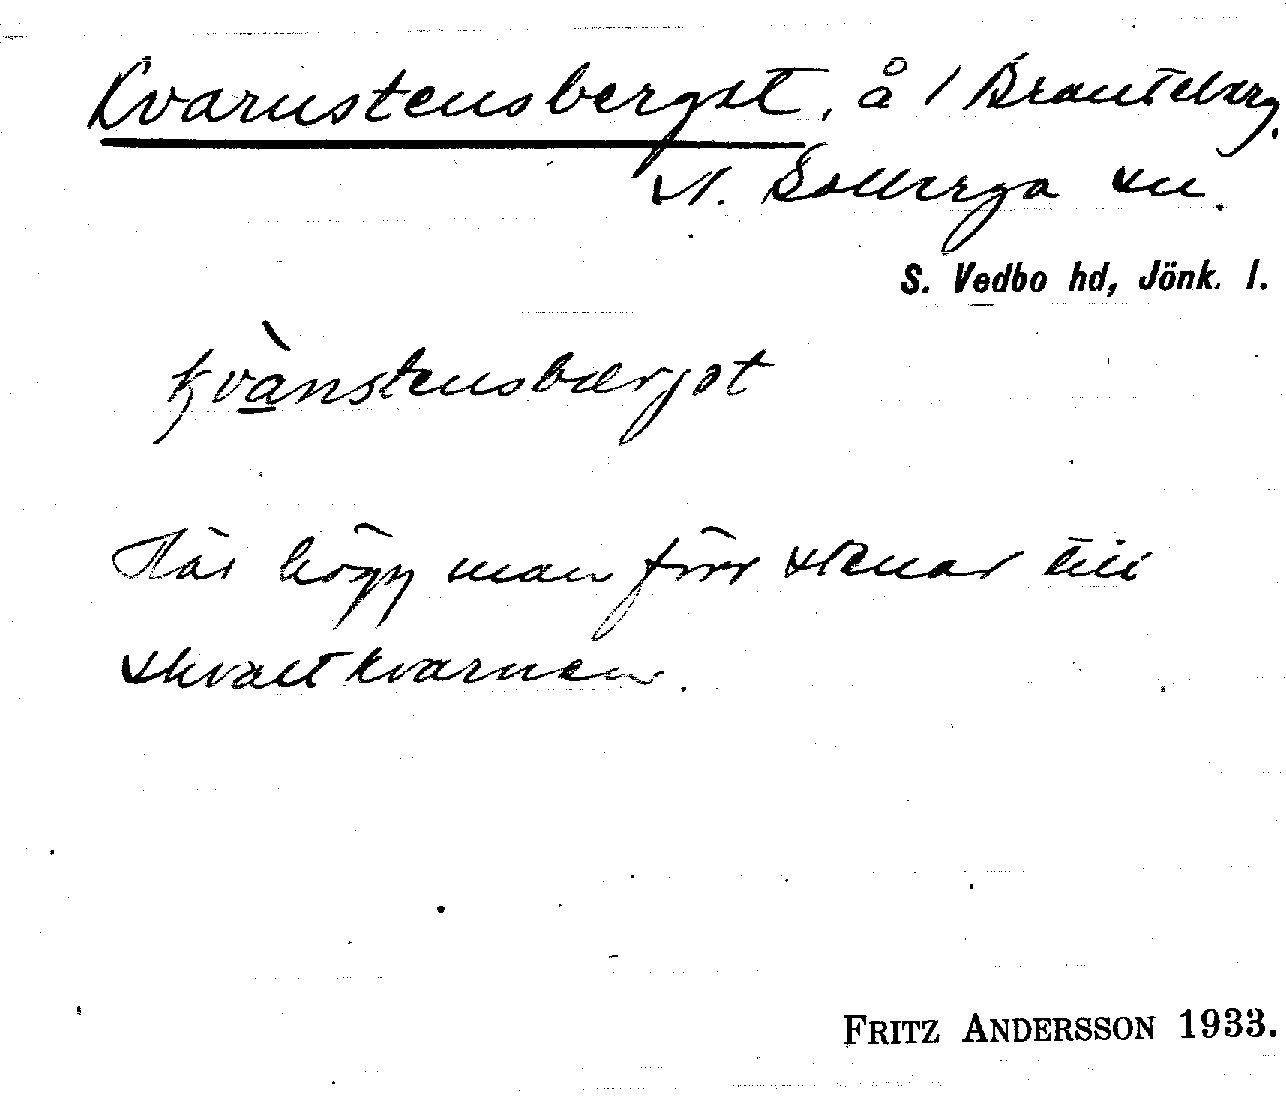 Kvarnstensberget, å 1 Branteberg.
N. Solberga sn.
S. Vedbo hd, Jönk. l.
kvànstensbærjət
Här högg man förr stenar till
skvaltkvarnen.
FRITZ ANDERSSON 1933.